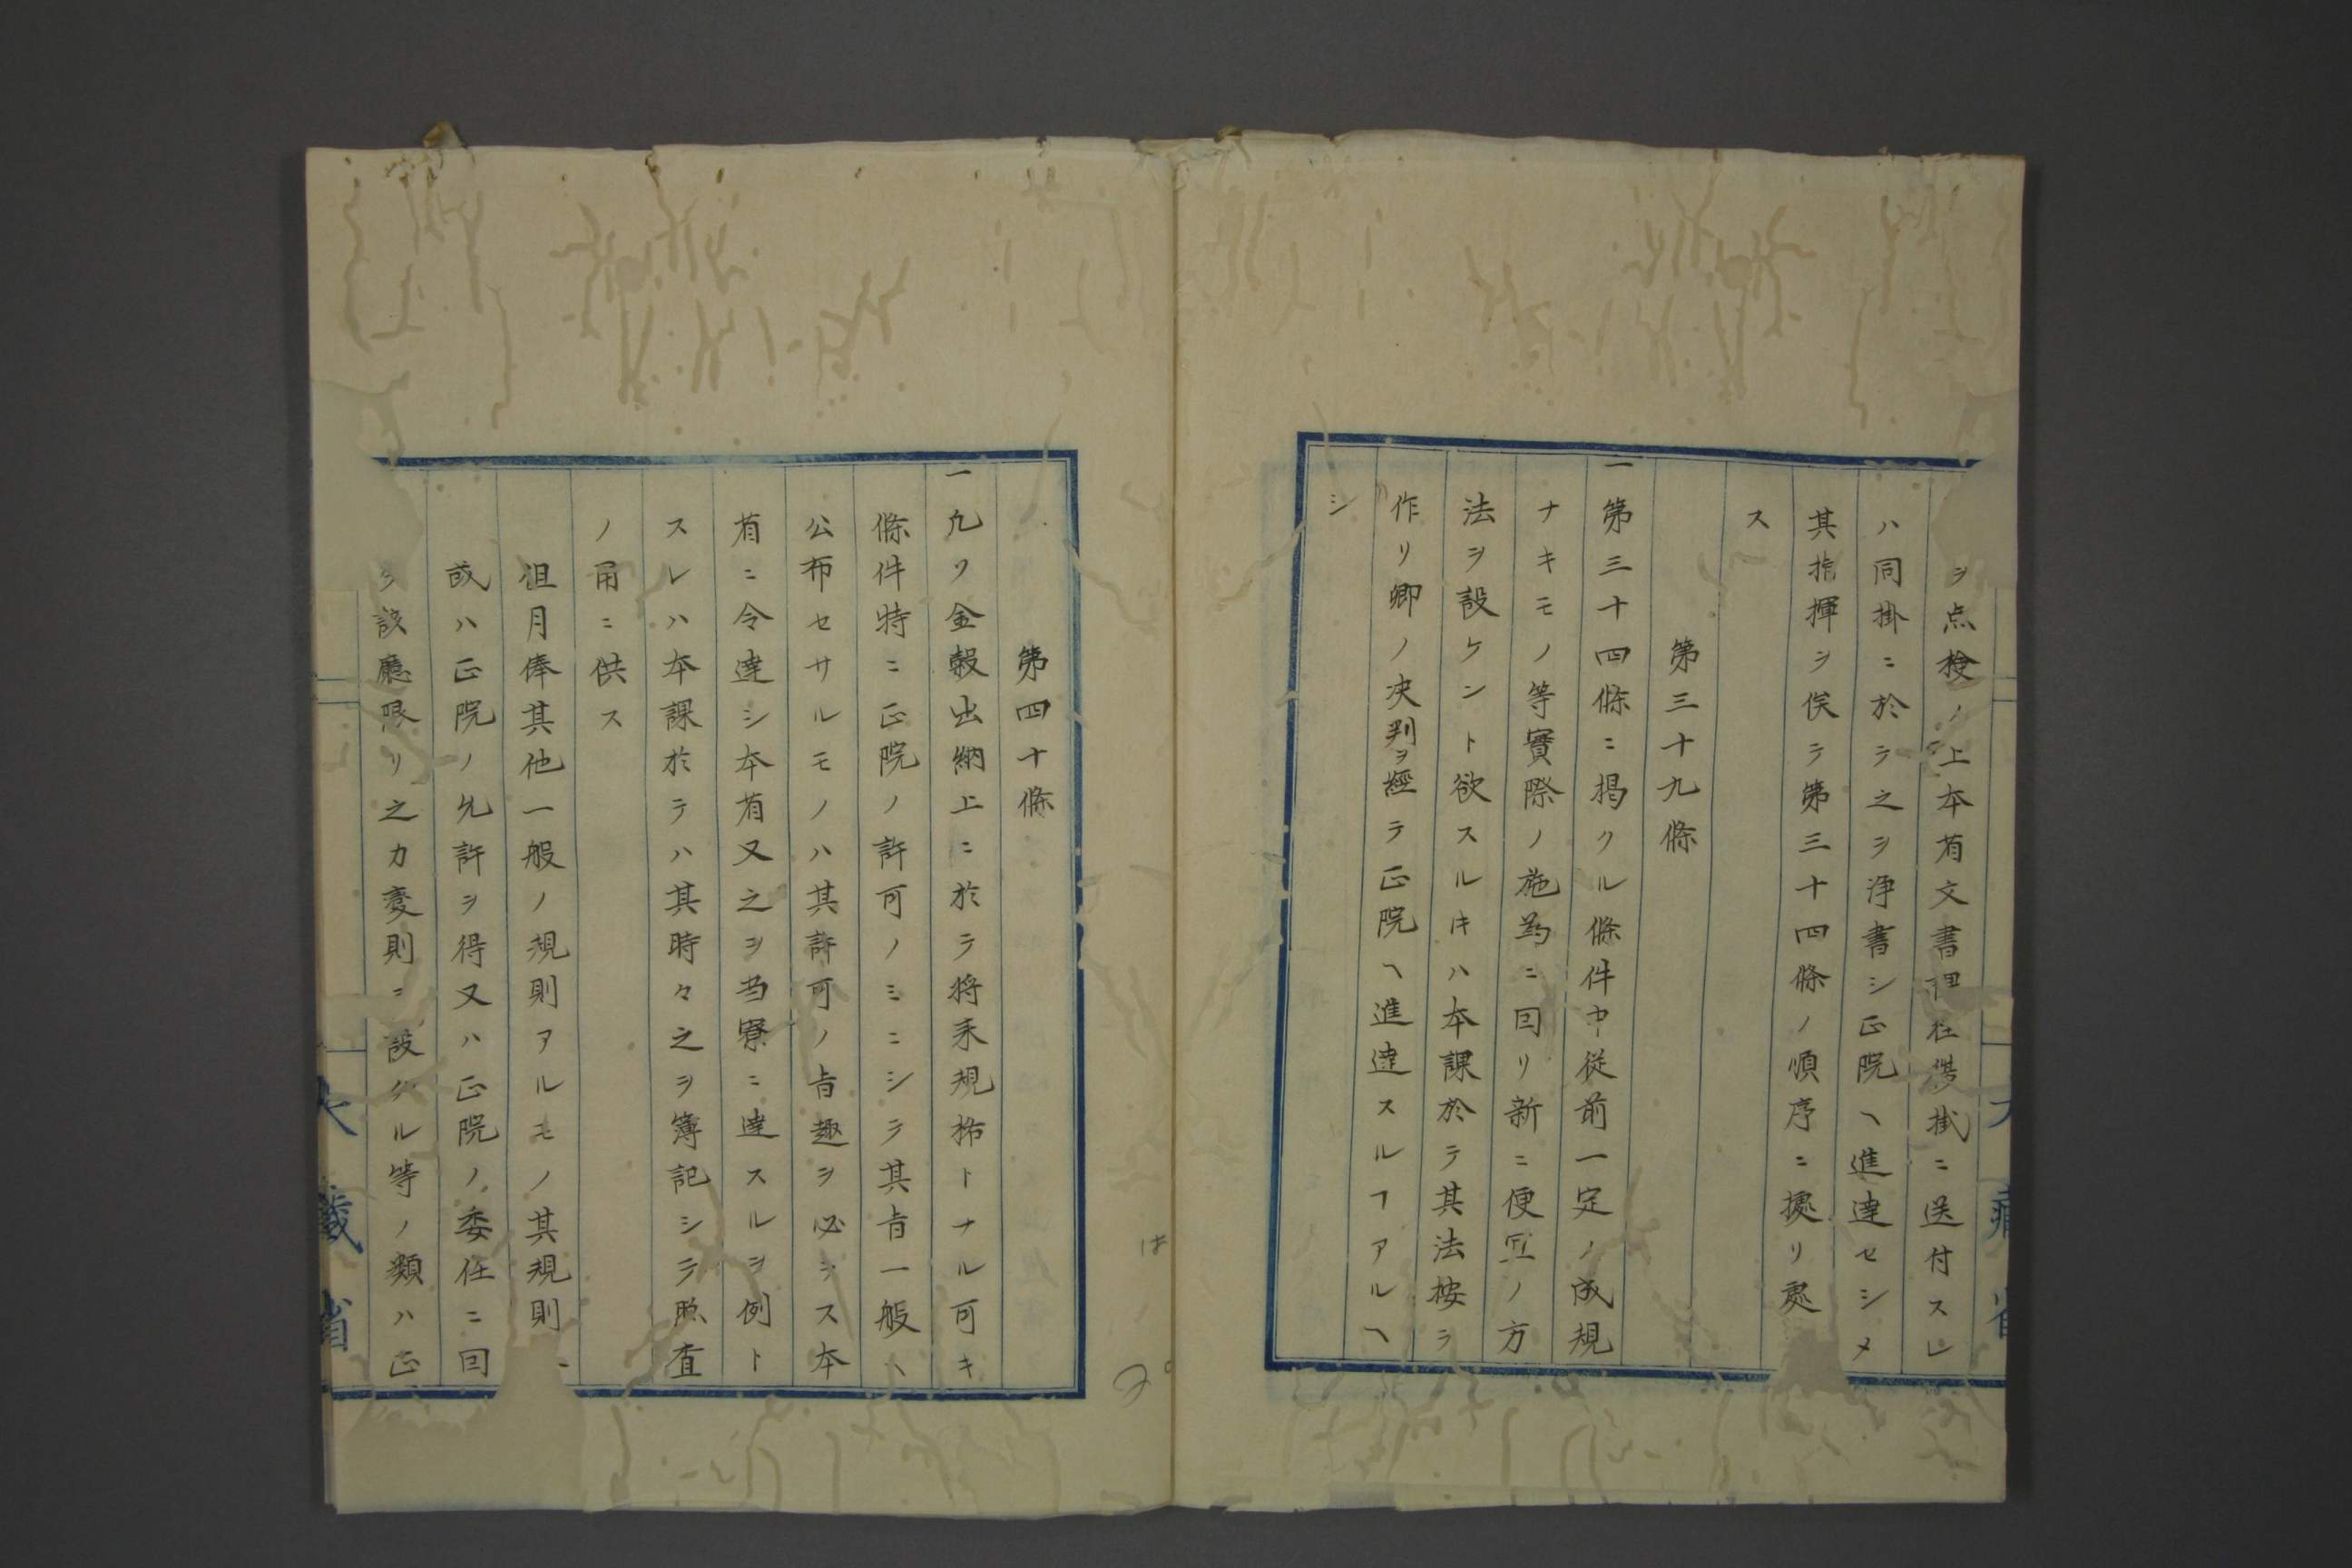 ヲ点撿ノ上本省文書課往復掛ニ送付スレ
ハ同掛ニ於テ之ヲ浄書シ正院ヘ進達セシメ
其指揮ヲ俟テ第三十四條ノ順序ニ據リ処
ス
第三十九條
一第三十四條ニ掲クル條件中従前一定ノ成規
ナキモノ等實際ノ施為ニ因リ新ニ便宜ノ方
法ヲ設ケント欲スルキハ本課於テ其法按ヲ
作リ卿ノ決判ヲ經テ正院ヘ進達スルヿアルヘ
シ
第四十條
一凢ソ金穀出納上ニ於テ将来規格トナル可キ
條件特ニ正院ノ許可ノミニシテ其旨一般ヘ
公布セサルモノハ其許可ノ旨趣ヲ必シス本
省ニ令達シ本省又之ヲ当寮ニ達スルヲ例ト
スレハ本課於テハ其時々之ヲ簿記シテ照査
ノ用ニ供ス
但月俸其他一般ノ規則アルモノ其規則
或ハ正院ノ允許ヲ得又ハ正院ノ委任ニ因
テ該廳限リ之カ変則ニ設クル等ノ類ハ正
大藏省
大藏省